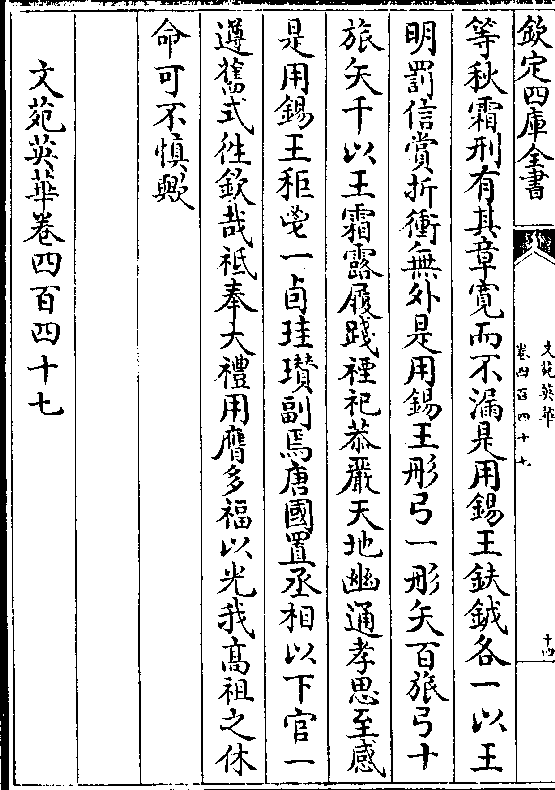 欽定四庫全書
文苑英華
卷四百四十七
十四
等秋霜刑有其章寛而不漏是用錫王鈇鉞各一以王
明罰信賞折衝無外是用錫王彤弓一彤矢百旅弓十
旅矢千以王霜露履踐禋祀恭嚴天地幽通孝思至感
是用錫王秬鬯一卣珪瓚副焉唐國置丞相以下官一
遵舊式徃欽哉祗奉大禮用膺多福以光我髙祖之休
命可不慎歟
文苑英華卷四百四十七